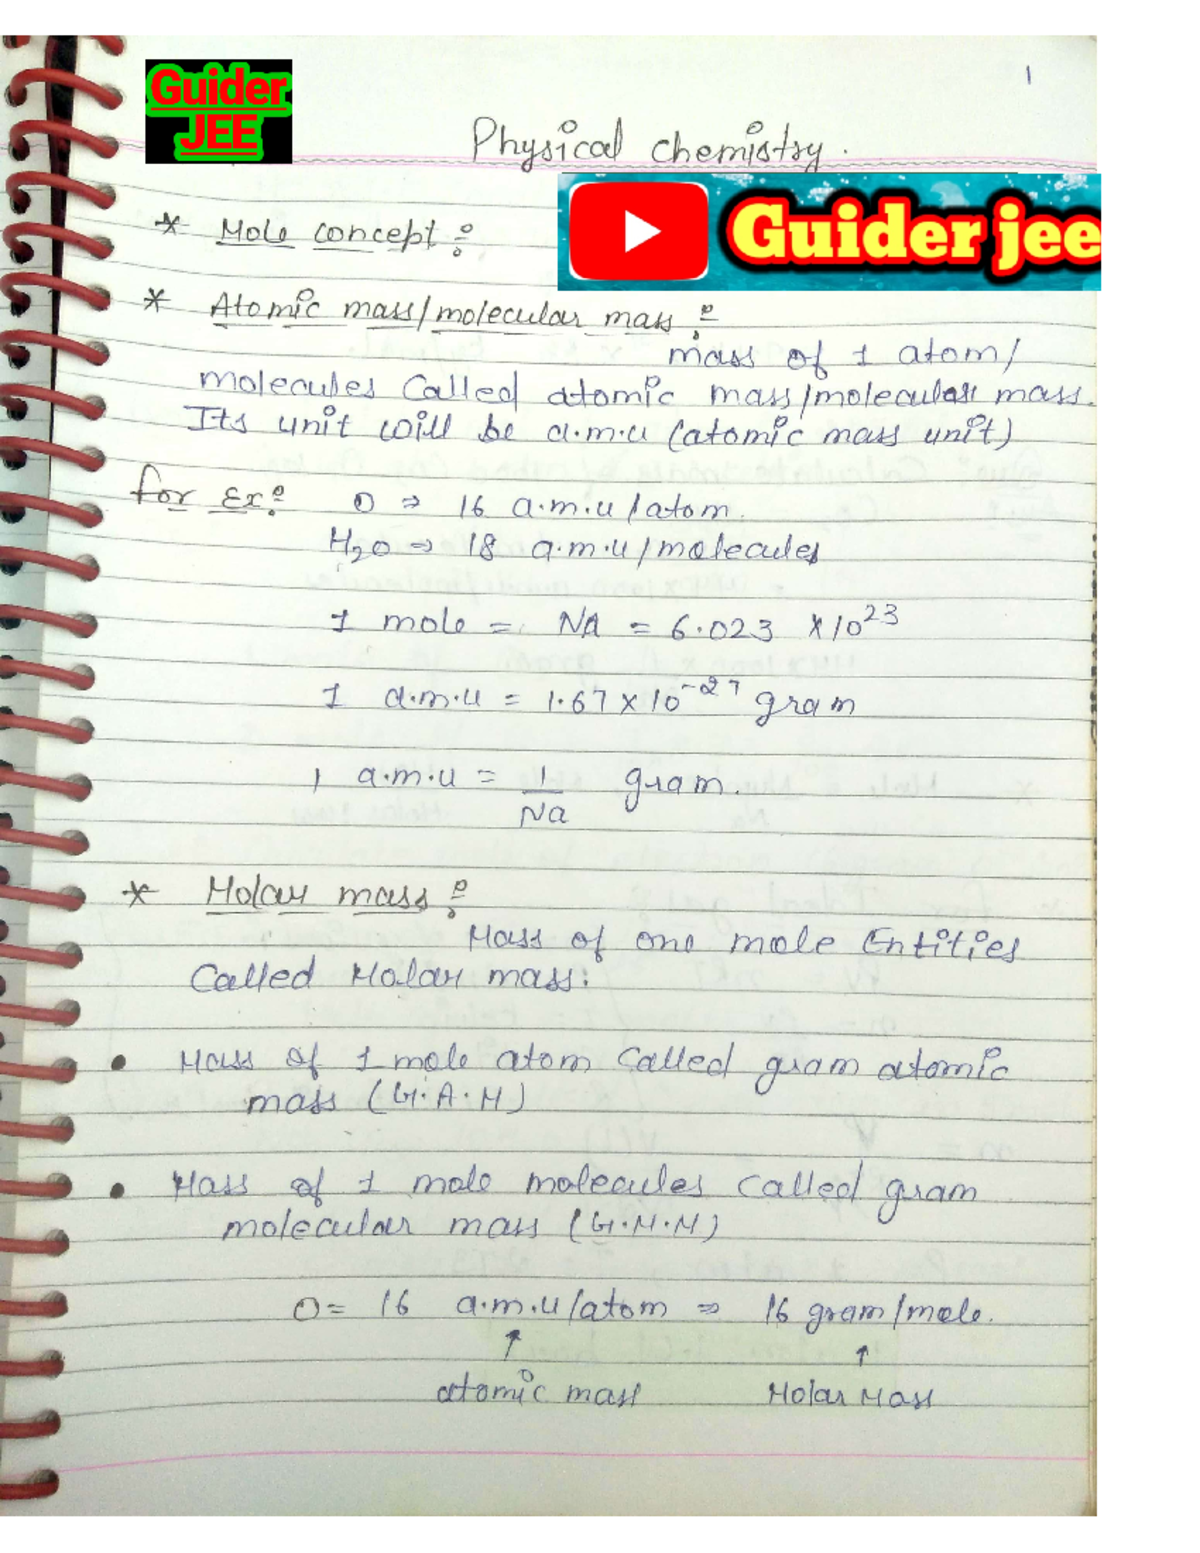 Guider
JEE
1
Physical chemistry.
Guider jee
* Mole concept :
* Atomic mass/molecular mass :
mass of 1 atom/
molecules Called atomic mass/molecular mass.
Its unit will be a.m.u (atomic mass unit)
for Ex: O ⇒ 16 a.m.u/atom.
H₂O ⇒ 18 a.m.u/molecules
1 mole = Na = 6.023 × 10²³
1 a.m.u = 1.67 × 10⁻²⁷ gram
1 a.m.u = 1/Na gram.
* Molar mass :
Mass of one mole Entities
Called Molar mass:
• Mass of 1 mole atom Called gram atomic
mass (G.A.M)
• Mass of 1 mole molecules Called gram
molecular mass (G.M.M)
O = 16 a.m.u/atom ⇒ 16 gram/mole.
↑ ↑
atomic mass Molar Mass